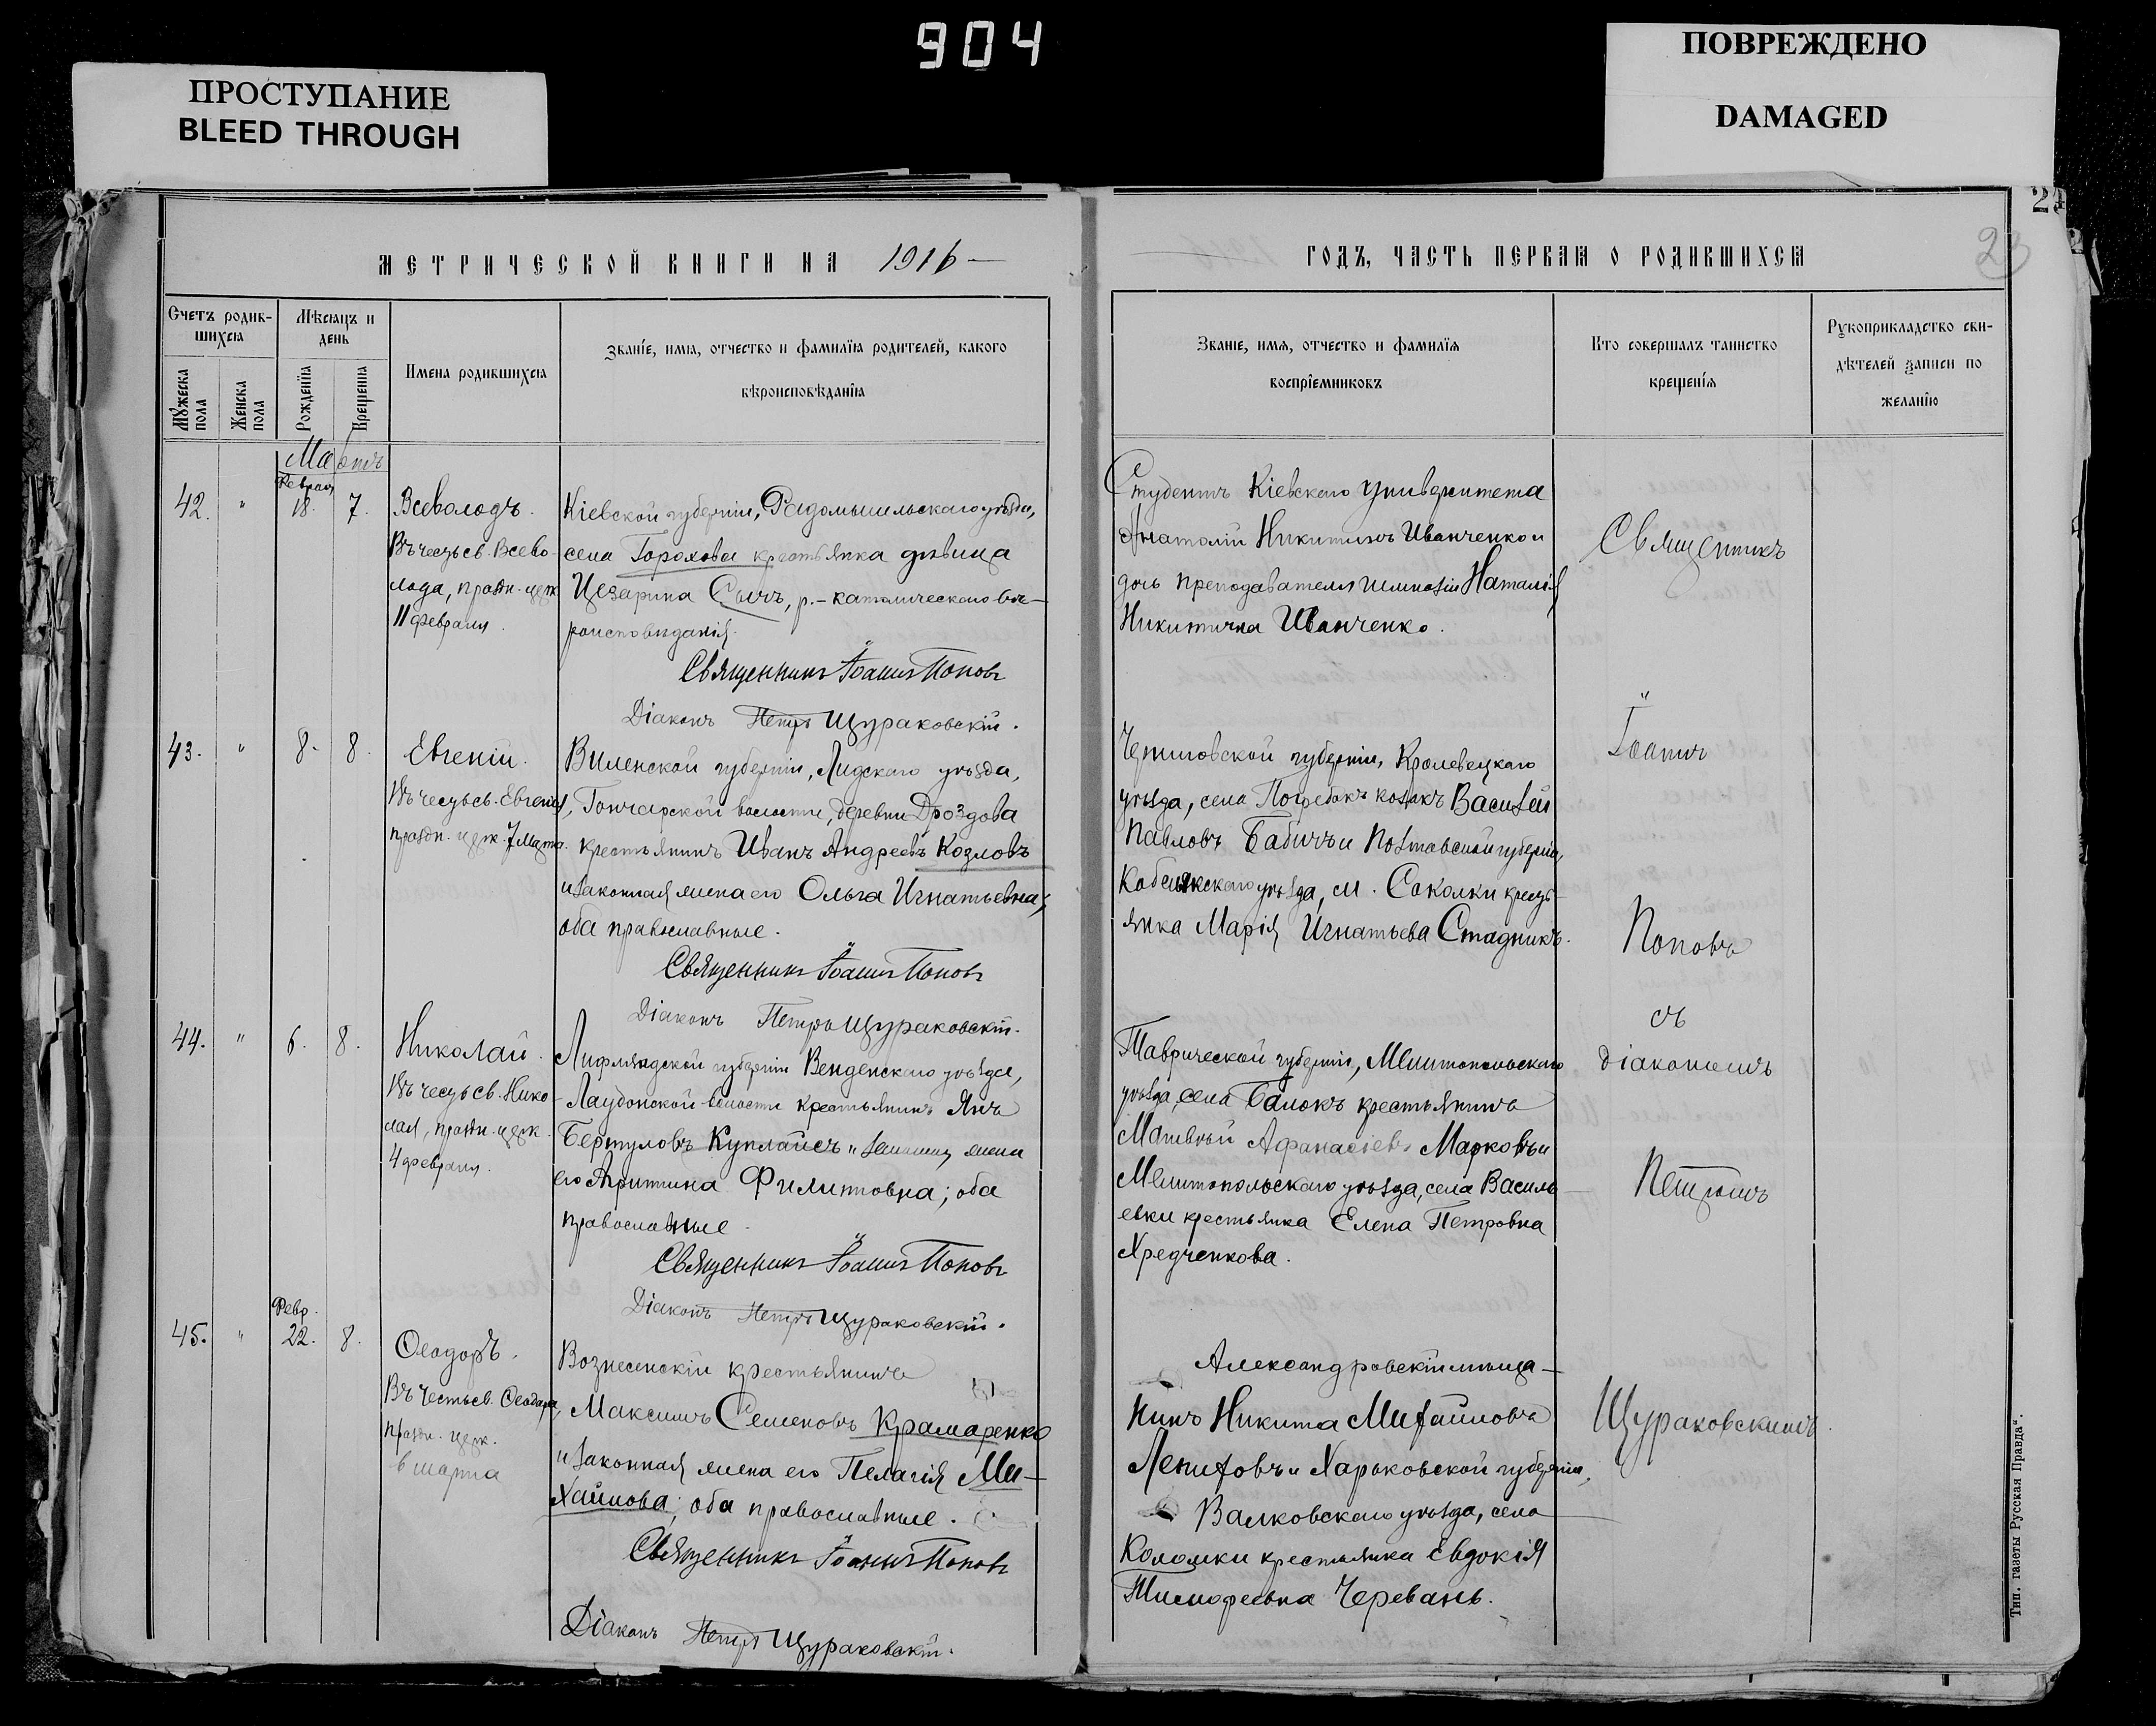 904
ПРОСТУПАНИЕ
BLEED THROUGH
ПОВРЕЖДЕНО
DAMAGED
МЕТРИЧЕСКОЙ КНИГИ НА 1916
Счетъ родив-
шихся
Мѣсяцъ и
день
Мужеска пола
Женска пола
Рожденія
Крещенія
Имена родившихся
Званіе, имя, отчество и фамилія родителей, какого
вѣроисповѣданія
Мартъ
42. " Февраля 18. 7. Всеволодъ.
Въ честь св. Всево-
лода, праздн. церк.
11 февраля.
Кіевской губерніи, Радомысльскаго уѣзда,
села Горохова крестьянка дѣвица
Цезарина Сычъ, р.-католическаго вѣ-
роисповѣданія.
Священникъ Іоаннъ Поповъ
Діаконъ Петръ Щураковскій.
43. " 8. 8. Евгеній.
Въ честь св. Евгенія,
праздн. церк. 7 марта.
Виленской губерніи, Лидскаго уѣзда,
Гончарской волости, деревни Дроздова
крестьянинъ Иванъ Андреевъ Козловъ
и законная жена его Ольга Игнатьевна;
оба православные.
Священникъ Іоаннъ Поповъ
Діаконъ Петръ Щураковскій.
44. " 6. 8. Николай.
Въ честь св. Нико-
лая, праздн. церк.
4 февраля.
Лифляндской губерніи Венденскаго уѣзда,
Лаудонской волости крестьянинъ Янъ
Бертуловъ Куплайсъ и законная жена
его Филипповна; оба
православные.
Священникъ Іоаннъ Поповъ
Діаконъ Петръ Щураковскій.
45. " Февр. 22. 8. Ѳеодоръ.
Въ честь св. Ѳеодора,
праздн. церк.
6 марта
Вознесенскій крестьянинъ
Максимъ Семеновъ Крамаренко
и законная жена его Пелагія Ми-
хайлова; оба православные.
Священникъ Іоаннъ Поповъ
Діаконъ Петръ Щураковскій.
24
23
ГОДЪ, ЧАСТЬ ПЕРВАЯ О РОДИВШИХСЯ
Званіе, имя, отчество и фамилія
воспріемниковъ
Кто совершалъ таинство
крещенія
Рукоприкладство сви-
дѣтелей записи по
желанію
Студентъ Кіевскаго университета
Анатолій Никитинъ Иванченко и
дочь преподавателя гимназіи Наталія
Никитична Иванченко.
Черниговской губерніи, Кролевецкаго
уѣзда, села Погребокъ козакъ Василій
Павловъ Бабичъ и Полтавской губерніи,
Кобелякскаго уѣзда, м. Соколки кресть-
янка Марія Игнатьева Стадникъ.
Таврической губерніи, Мелитопольскаго
уѣзда, села Балокъ крестьянинъ
Матвѣй Афанасіевъ Марковъ и
Мелитопольскаго уѣзда, села Василь-
евки крестьянка Елена Петровна
Хредченкова.
Александровскій мѣща-
нинъ Никита Михайловъ
Ленифовъ и Харьковской губерніи,
Валковскаго уѣзда, села
Коломки крестьянка Евдокія
Тимофеевна Черевань.
Священникъ
Іоаннъ
Поповъ
съ
діакономъ
Петромъ
Щураковскимъ.
Тип. газеты Русская Правда".